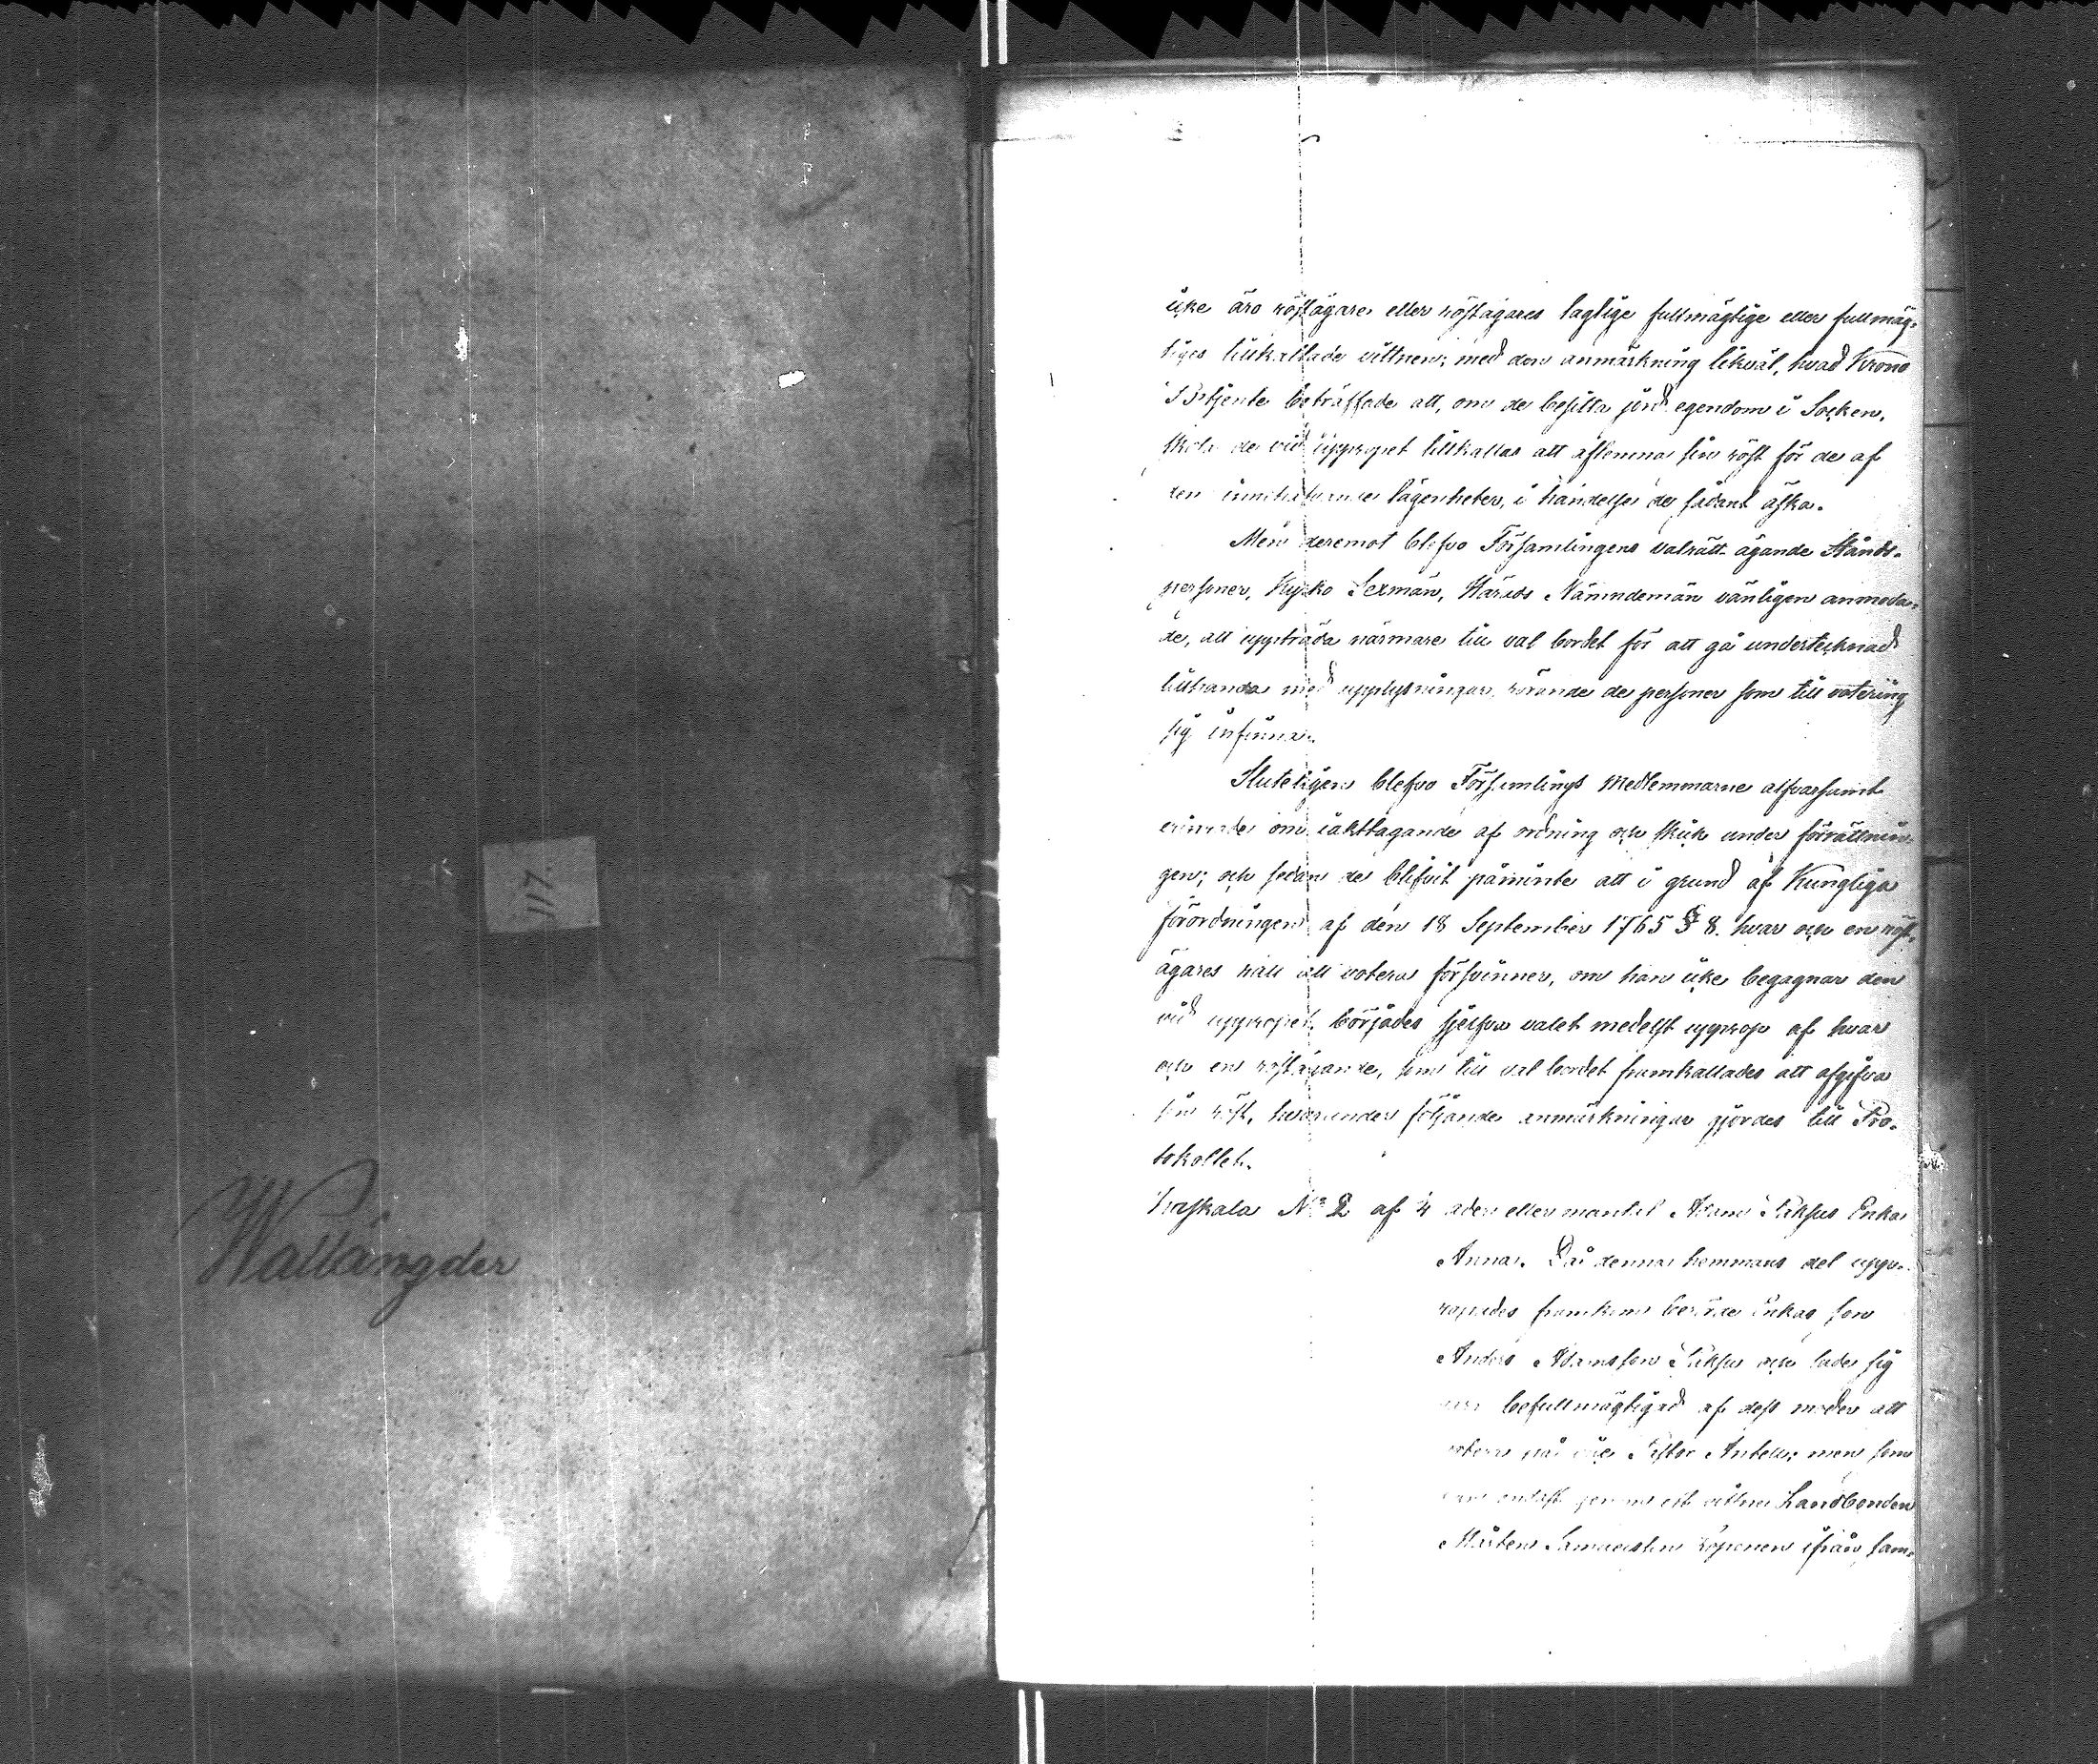 117.
Wallängder
icke äro röstägare eller röstägares laglige fullmägtige eller fullmäg-
tiges tillkallade vittnen; med den anmärkning likväl, hvad Krono
Betjente beträffade att, om de besitta jord egendom i Socken,
skola de vid uppropet tillkallas att aflemna sin röst för de af
dem innehafvande lägenheter, i händelse de sådant äska.
Men deremot blefvo Församlingens valrätt ägande Stånds-
personer, Kyrko Sexmän, Härads Nämndemän vänligen anmoda-
de, att uppträda närmare till val bordet för att gå undertecknad
tillhanda med upplysningar, rörande de personer som till votering
sig infinna.
Sluteligen blefvo Församlings Medlemmarne alfvarsamt
erinrade om iakttagande af ordning och skick under förrättnin-
gen; och sedan de blifvit påminte att i grund af Kungliga
förordningen af den 18 September 1765 § 8. hvar och en röst-
ägares rätt att votera försvinner, om han icke begagnar den
vid uppropet, börjades sjelfva valet medelst upprop af hvar
och en röstägande, som till val bordet framkallades att afgifva
sin röst, hvarunder följande anmärkningar gjordes till Pro-
tokollet.
N:o 2 af 4 eller mantal Adam Enka
Anna. Då denna hemmans del upp-
ropades framkom Enkas son
Anders Adamsson och lade sig
befullmägtigad af dess moder att
votera på Pastor Antell; men som
endast genom ett vittne Landbonden
Mårten Samuelsson ifrån sam-